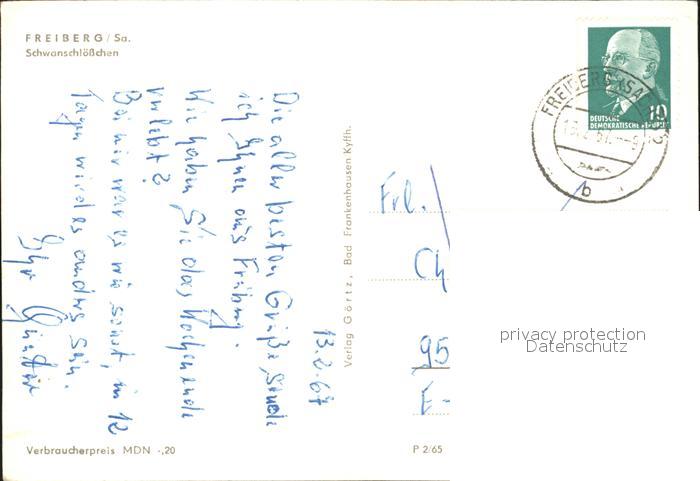 FREIBERG / Sa.
Schwanschlößchen
13.2.67
Die aller besten Grüße, sende
ich Ihnen aus Freiberg.
Wie haben Sie das Wochenende
verlebt?
Bei mir war es wie sonst, in 12
Tagen wird es anders sein.
Ihr Günter
Verbraucherpreis MDN -,20
Verlag Görtz, Bad Frankenhausen Kyffh.
P 2/65
DEUTSCHE
DEMOKRATISCHE REPUBLIK
10
FREIBERG (SACHS)
b
Frl.
Ch
95
privacy protection
Datenschutz